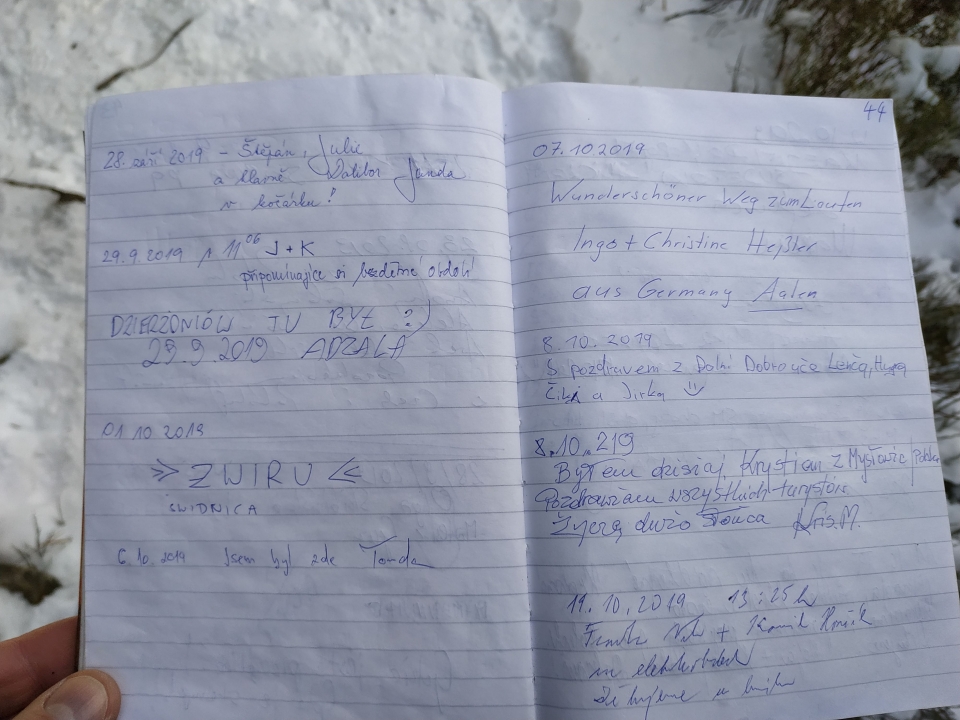 28. září 2019 - Štěpán, Julie
a hlavně Dalibor Janda
v kočárku!
29.9.2019 11⁰⁶ J + K
připomínajíce si bezdětné období
DZIERŻONIÓW TU BYŁ ?)
29.9.2019 ADZALA
01.10 2019
>> ZWIRU <<
ŚWIDNICA
6.10.2019 Jsem byl zde Tonda
44
07.10 2019
Wunderschöner Weg zum Laufen
Ingo + Christine
aus Germany Aalen
8.10.2019
S pozdravem z Dolní Dobrouče
a Jirka
8.10.219
Byłem dzisiaj Krystian z Mysłowic Polska
Pozdrawiam wszystkich turystów
Życzę dużo Słońca Kris.M.
11.10.2019 13:25h
+ Kamil
na elektrokolech
Děkujeme